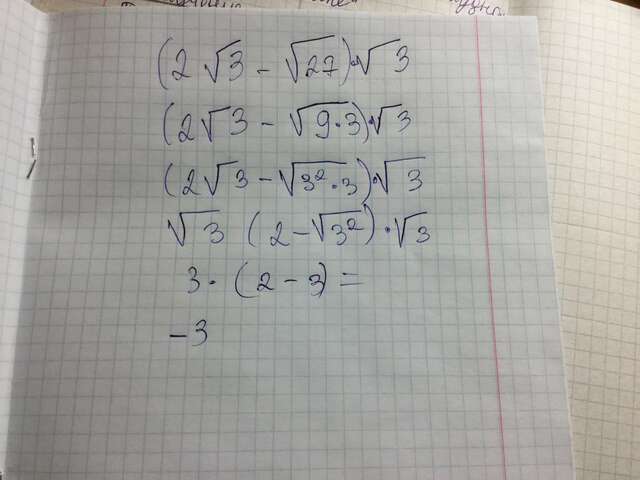 (2√3 - √27)·√3
(2√3 - √9·3)·√3
(2√3 - √3²·3)·√3
√3 (2 - √3²)·√3
3·(2 - 3) =
-3